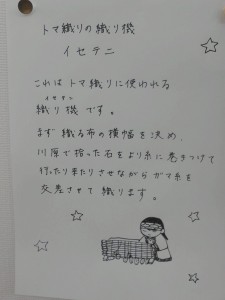 トマ織りの織り機
イセテニ
これはトマ織りに使われる
イセテニ
織り機です。
まず織る布の横幅を決め、
川原で拾った石をより糸に巻きつけて
行ったり来たりさせながらガマ糸を
交差させて織ります。